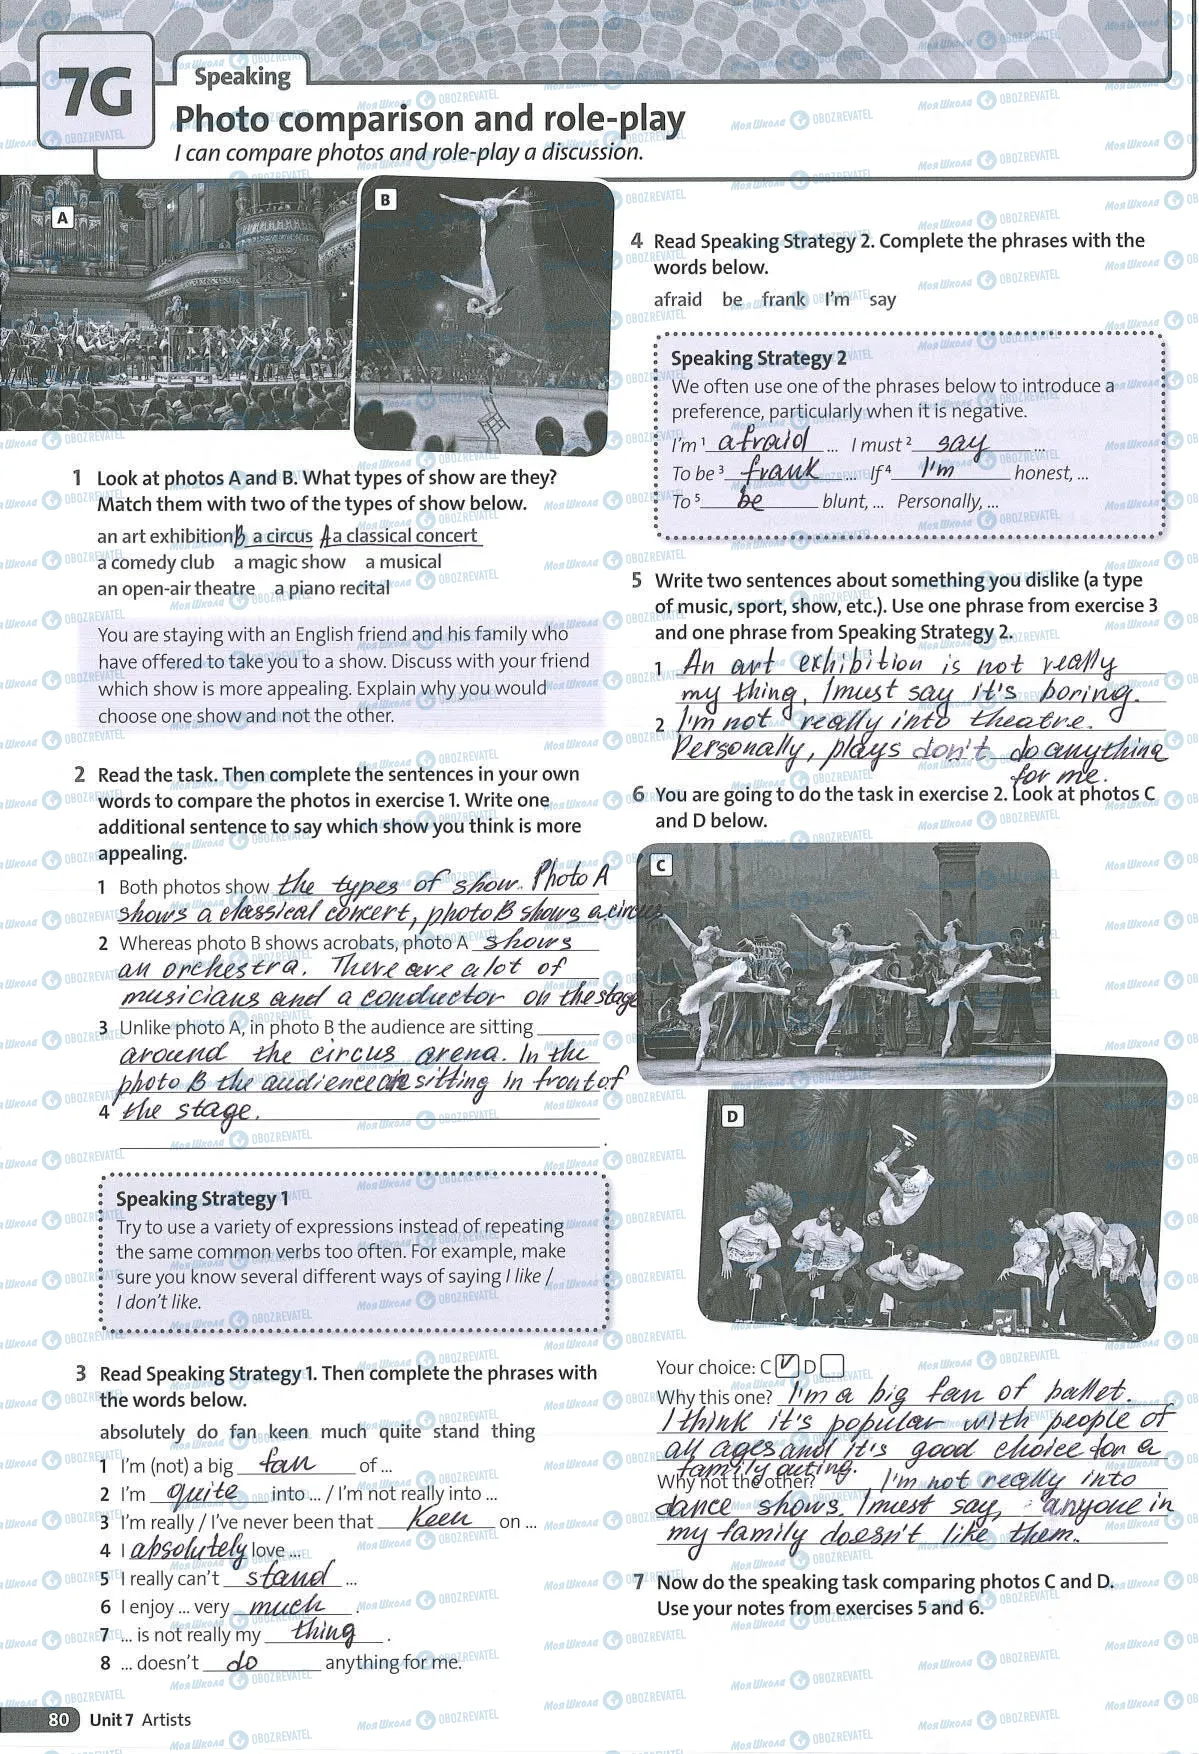 7G
Speaking
Photo comparison and role-play
I can compare photos and role-play a discussion.
A
B
1 Look at photos A and B. What types of show are they?
Match them with two of the types of show below.
an art exhibition B a circus A a classical concert
a comedy club a magic show a musical
an open-air theatre a piano recital
You are staying with an English friend and his family who
have offered to take you to a show. Discuss with your friend
which show is more appealing. Explain why you would
choose one show and not the other.
2 Read the task. Then complete the sentences in your own
words to compare the photos in exercise 1. Write one
additional sentence to say which show you think is more
appealing.
1 Both photos show the types of show. Photo A
shows a classical concert, photo B shows a circus
2 Whereas photo B shows acrobats, photo A shows
an orchestra. There are a lot of
musicians and a conductor on the stage
3 Unlike photo A, in photo B the audience are sitting
around the circus arena. In the
photo B the audience are sitting in front of
4 the stage.
Speaking Strategy 1
Try to use a variety of expressions instead of repeating
the same common verbs too often. For example, make
sure you know several different ways of saying I like /
I don't like.
3 Read Speaking Strategy 1. Then complete the phrases with
the words below.
absolutely do fan keen much quite stand thing
1 I'm (not) a big fan of ...
2 I'm quite into ... / I'm not really into ...
3 I'm really / I've never been that keen on ...
4 I absolutely love ...
5 I really can't stand ...
6 I enjoy ... very much .
7 ... is not really my thing .
8 ... doesn't do anything for me.
80 Unit 7 Artists
4 Read Speaking Strategy 2. Complete the phrases with the
words below.
afraid be frank I'm say
Speaking Strategy 2
We often use one of the phrases below to introduce a
preference, particularly when it is negative.
I'm 1 afraid ... I must 2 say ...
To be 3 frank ... If 4 I'm honest, ...
To 5 be blunt, ... Personally, ...
5 Write two sentences about something you dislike (a type
of music, sport, show, etc.). Use one phrase from exercise 3
and one phrase from Speaking Strategy 2.
1 An art exhibition is not really
my thing. I must say it's boring.
2 I'm not really into theatre.
Personally, plays don't do anything
for me.
6 You are going to do the task in exercise 2. Look at photos C
and D below.
C
D
Your choice: C V D
Why this one? I'm a big fan of ballet.
I think it's popular with people of
all ages and it's good choice for a
family outing.
Why not the other? I'm not really into
dance shows. I must say, anyone in
my family doesn't like them.
7 Now do the speaking task comparing photos C and D.
Use your notes from exercises 5 and 6.
Моя Школа OBOZREVATEL